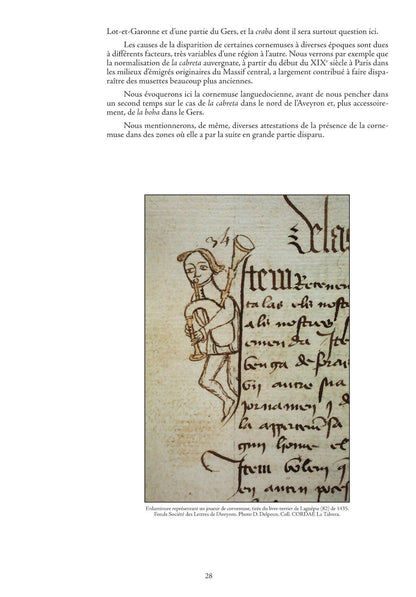 Lot-et-Garonne et d'une partie du Gers, et la craba dont il sera surtout question ici.
Les causes de la disparition de certaines cornemuses à diverses époques sont dues
à différents facteurs, très variables d'une région à l'autre. Nous verrons par exemple que
la normalisation de la cabreta auvergnate, à partir du début du XIXe siècle à Paris dans
les milieux d'émigrés originaires du Massif central, a largement contribué à faire dispa-
raître des musettes beaucoup plus anciennes.
Nous évoquerons ici la cornemuse languedocienne, avant de nous pencher dans
un second temps sur le cas de la cabreta dans le nord de l'Aveyron et, plus accessoire-
ment, de la boha dans le Gers.
Nous mentionnerons, de même, diverses attestations de la présence de la corne-
muse dans des zones où elle a par la suite en grande partie disparu.
34
Item
talas els nostres
als nostres
Item
Enluminure représentant un joueur de cornemuse, tirée du livre-terrier de Laguépie (82) de 1435.
Fonds Société des Lettres de l'Aveyron. Photo D. Delpoux. Coll. CORDAE La Talvera.
28